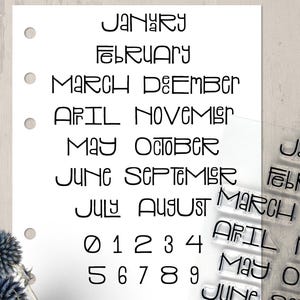 JANUARY
FEBRUARY
MARCH DECEMBER
APRIL NOVEMBER
MAY OCTOBER
JUNE SEPTEMBER
JULY AUGUST
0 1 2 3 4
5 6 7 8 9
MARCH
APRIL
MAY
JUNE